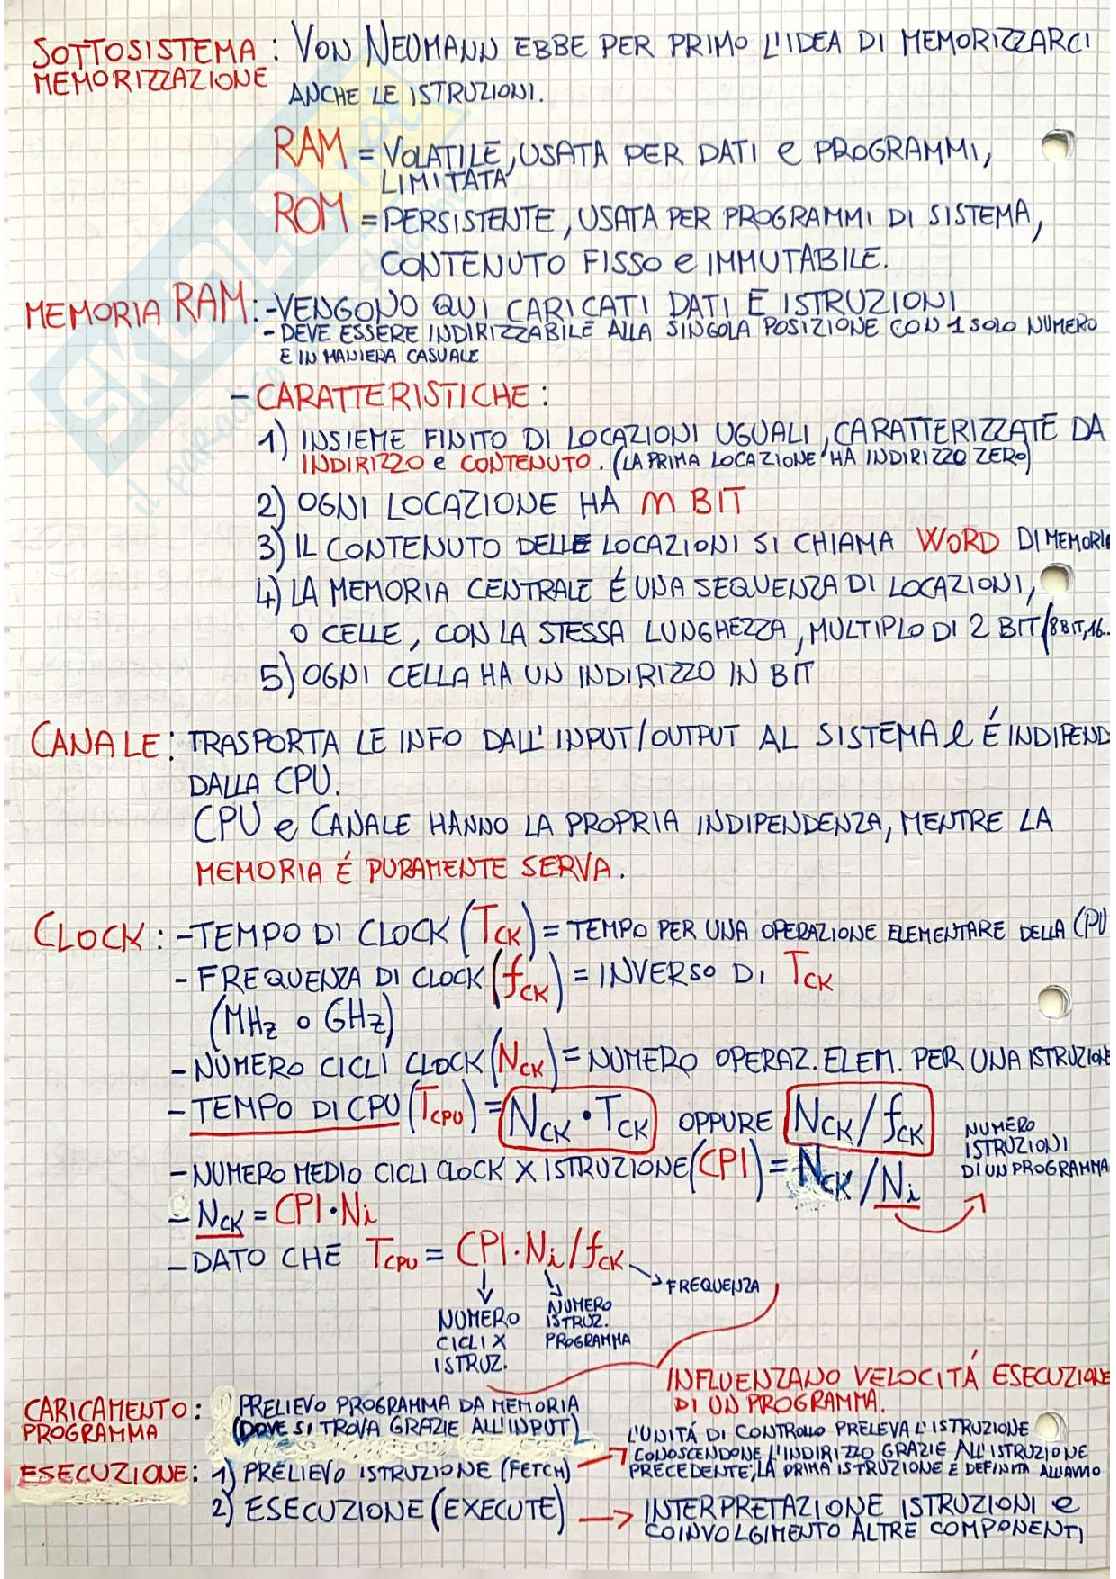 SOTTOSISTEMA : VON NEUMANN EBBE PER PRIMO L'IDEA DI MEMORIZZARCI
MEMORIZZAZIONE ANCHE LE ISTRUZIONI.
RAM = VOLATILE, USATA PER DATI e PROGRAMMI,
LIMITATA
ROM = PERSISTENTE, USATA PER PROGRAMMI DI SISTEMA,
CONTENUTO FISSO e IMMUTABILE.
MEMORIA RAM: -VENGONO QUI CARICATI DATI E ISTRUZIONI
- DEVE ESSERE INDIRIZZABILE ALLA SINGOLA POSIZIONE CON 1 SOLO NUMERO
E IN MANIERA CASUALE
- CARATTERISTICHE :
1) INSIEME FINITO DI LOCAZIONI UGUALI, CARATTERIZZATE DA
INDIRIZZO e CONTENUTO. (LA PRIMA LOCAZIONE HA INDIRIZZO ZERO)
2) OGNI LOCAZIONE HA M BIT
3) IL CONTENUTO DELLE LOCAZIONI SI CHIAMA WORD DI MEMORIA
4) LA MEMORIA CENTRALE É UNA SEQUENZA DI LOCAZIONI,
O CELLE, CON LA STESSA LUNGHEZZA, MULTIPLO DI 2 BIT (8BIT, 16..
5) OGNI CELLA HA UN INDIRIZZO IN BIT
CANALE: TRASPORTA LE INFO DALL'INPUT/OUTPUT AL SISTEMA e É INDIPEND
DALLA CPU.
CPU e CANALE HANNO LA PROPRIA INDIPENDENZA, MENTRE LA
MEMORIA É PURAMENTE SERVA.
CLOCK : -TEMPO DI CLOCK (TCK) = TEMPO PER UNA OPERAZIONE ELEMENTARE DELLA CPU
- FREQUENZA DI CLOCK (fCK) = INVERSO DI TCK
(MHz o GHz)
- NUMERO CICLI CLOCK (NCK) = NUMERO OPERAZ. ELEM. PER UNA ISTRUZIONE
- TEMPO DI CPU (TCPU) = NCK • TCK OPPURE NCK / fCK
- NUMERO MEDIO CICLI CLOCK X ISTRUZIONE (CPI) = NCK / Ni
NUMERO
ISTRUZIONI
DI UN PROGRAMMA
- NCK = CPI • Ni
- DATO CHE TCPU = CPI • Ni / fCK
FREQUENZA
NUMERO
CICLI X
ISTRUZ.
NUMERO
ISTRUZ.
PROGRAMMA
INFLUENZANO VELOCITÁ ESECUZIONE
DI UN PROGRAMMA.
CARICAMENTO : PRELIEVO PROGRAMMA DA MEMORIA
PROGRAMMA (DOVE SI TROVA GRAZIE ALL'INPUT)
ESECUZIONE : 1) PRELIEVO ISTRUZIONE (FETCH)
L'UNITÁ DI CONTROLLO PRELEVA L'ISTRUZIONE
CONOSCENDONE L'INDIRIZZO GRAZIE ALL'ISTRUZIONE
PRECEDENTE, LA PRIMA ISTRUZIONE E DEFINITA ALL'AVVIO
2) ESECUZIONE (EXECUTE) → INTERPRETAZIONE ISTRUZIONI e
COINVOLGIMENTO ALTRE COMPONENTI